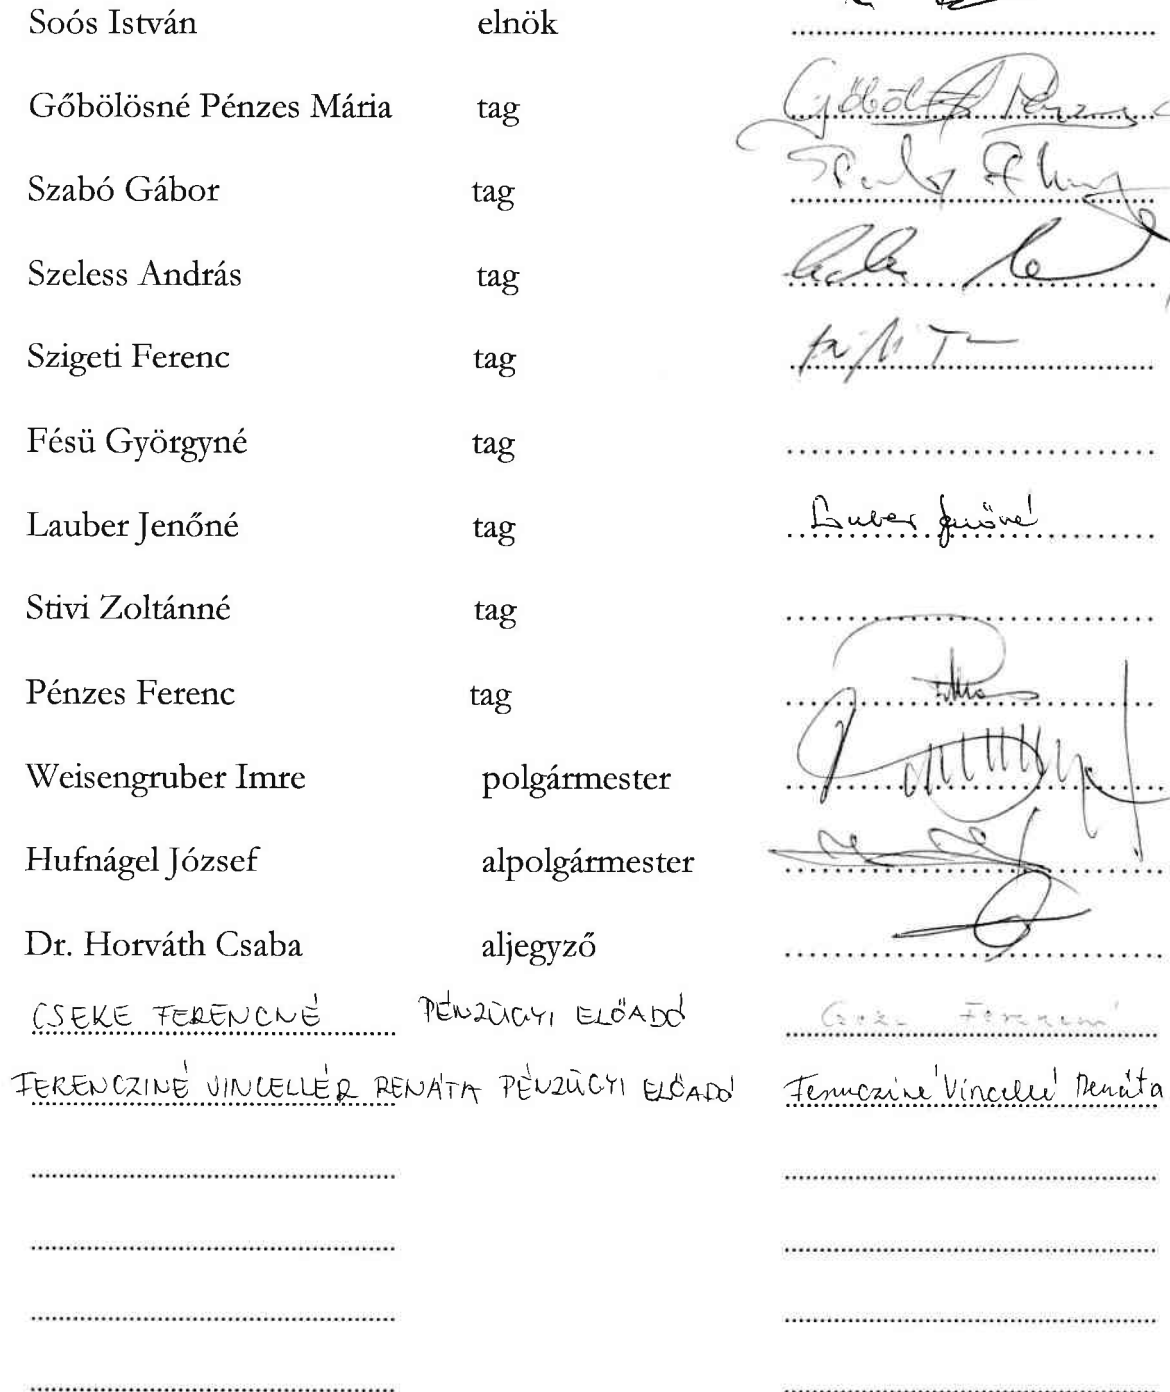 Soós István elnök
Gőbölösné Pénzes Mária tag
Szabó Gábor tag
Szeless András tag
Szigeti Ferenc tag
Fésü Györgyné tag
Lauber Jenőné tag Lauber Jenőné
Stivi Zoltánné tag
Pénzes Ferenc tag
Weisengruber Imre polgármester
Hufnágel József alpolgármester
Dr. Horváth Csaba aljegyző
CSEKE FERENCNÉ PÉNZÜGYI ELŐADÓ Cseke Ferencné
FERENCZINÉ VINCELLÉR RENÁTA PÉNZÜGYI ELŐADÓ Ferencziné Vincellé Renáta